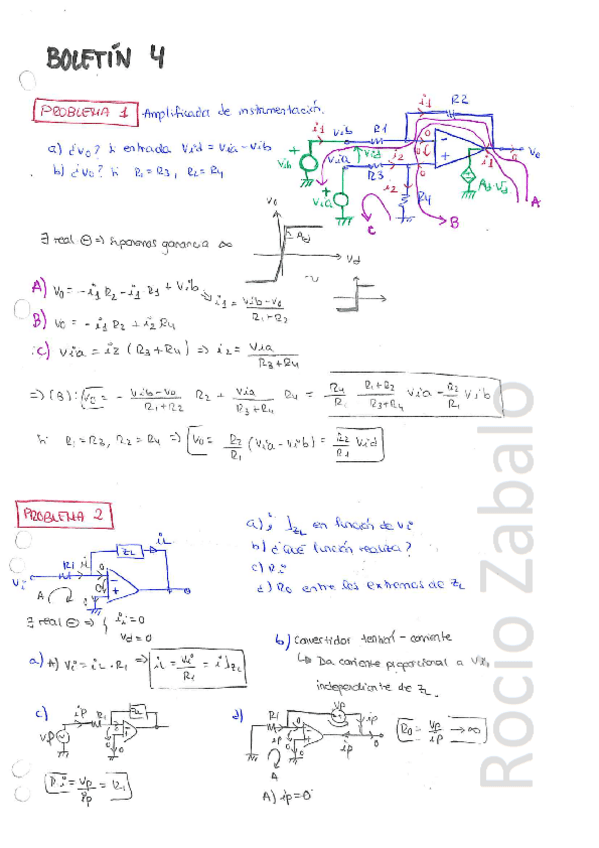 BOLETÍN 4
PROBLEMA 1 Amplificador de instrumentación.
a) ¿Vo? si entrada Vid = Via - Vib
b) ¿Vo? si R1 = R3, R2 = R4
i1
R2
i1
Vib
R1
Vid
Via
i2
R3
i2
R4
Vib
Via
Ad·Vd
Vo
A
B
C
∃ real ⊖ => Suponemos ganancia ∞
Vo
Ad
Vd
A) Vo = -i1 R2 - i1 R1 + Vib
i1 = (Vib - Vo)/(R1 + R2)
B) Vo = -i1 R2 + i2 R4
C) Via = i2 (R3 + R4) => i2 = Via/(R3 + R4)
=> (B): Vo = - (Vib - Vo)/(R1 + R2) R2 + Via/(R3 + R4) R4 = R4/R1 (R1 + R2)/(R3 + R4) Via - R2/R1 Vib
Si R1 = R3, R2 = R4 => Vo = R2/R1 (Via - Vib) = R2/R1 Vid
PROBLEMA 2
a) ¿i]ZL en función de Vi
b) ¿Qué función realiza?
c) Ri
d) Ro entre los extremos de ZL
iL
ZL
R1
iL
Vi
A
∃ real ⊖ => { ii = 0
Vd = 0
a) A) Vi = iL · R1 => iL = Vi/R1 = i]ZL
b) Convertidor tensión - corriente
↳ Da corriente proporcional a Vi,
independiente de ZL.
c)
ip
R1
ZL
Vp
Ri = Vp/ip = R1
d)
R1
Vp
ip
ip
ip
A
A) ip = 0
Ro = Vp/ip → ∞
Rocio Zabalo